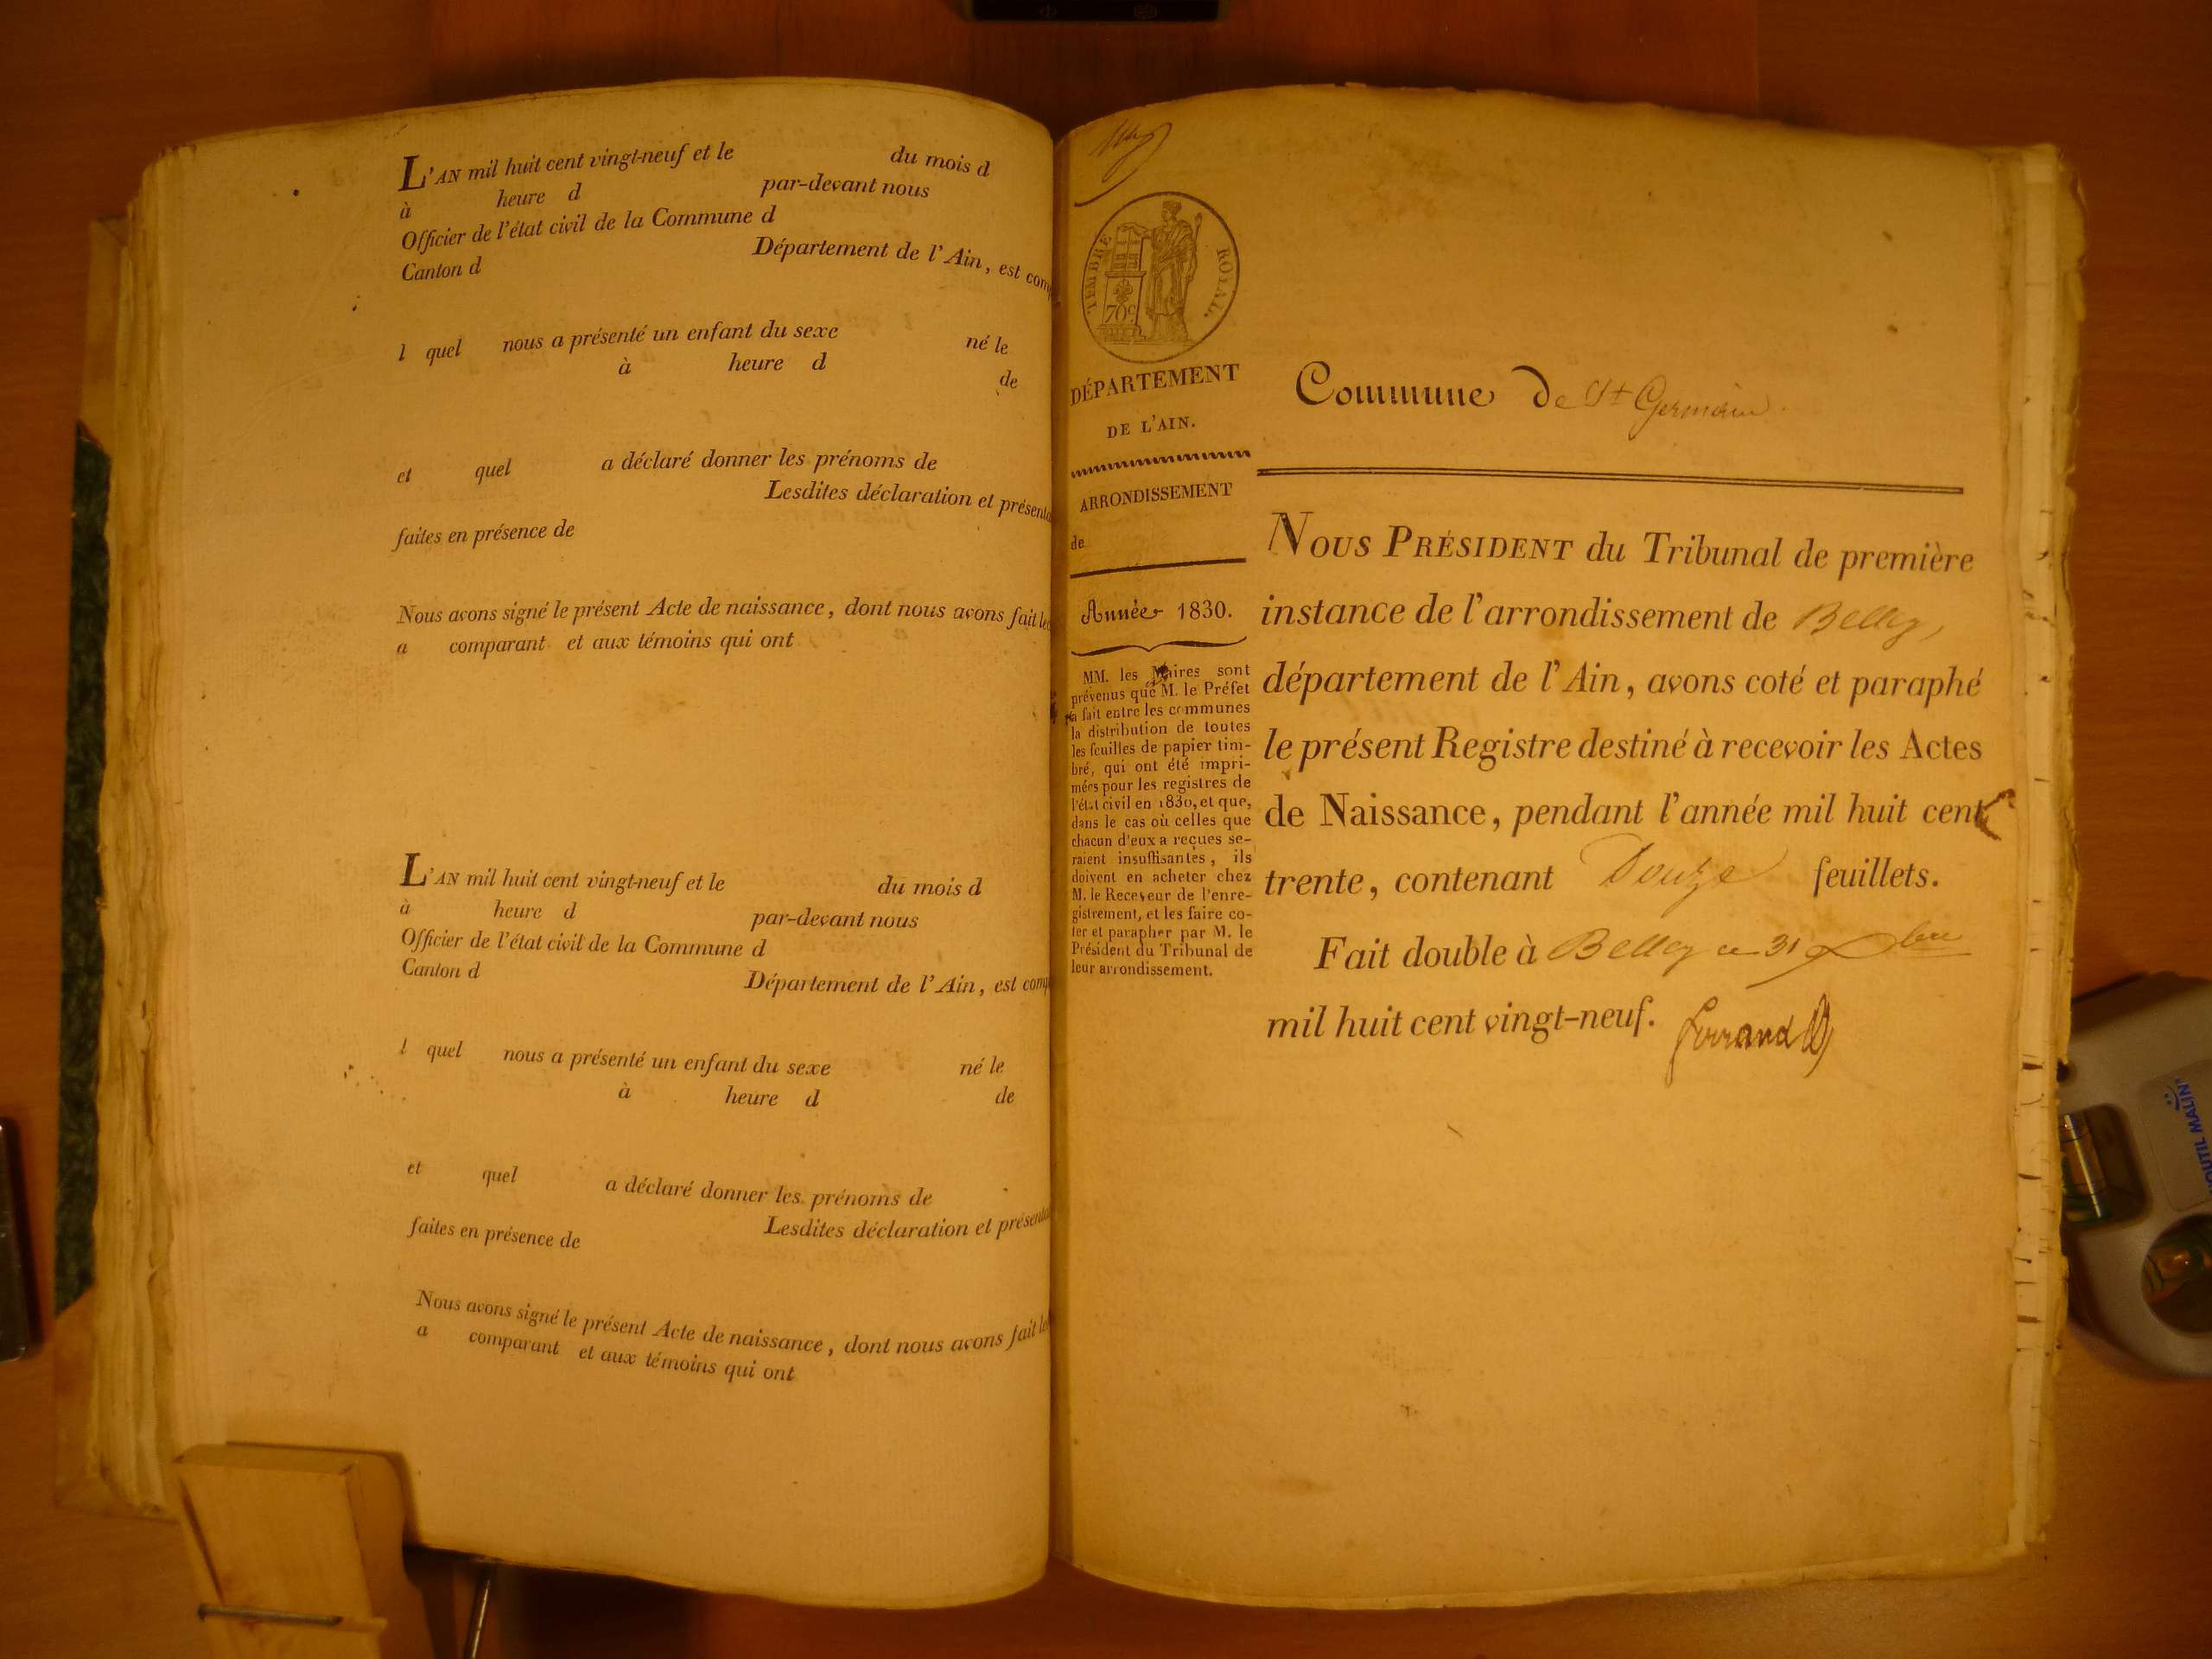 L'AN mil huit cent vingt-neuf et le du mois d
à heure d par-devant nous
Officier de l'état civil de la Commune d
Canton d Département de l'Ain, est com
l quel nous a présenté un enfant du sexe né le
à heure d de
et quel a déclaré donner les prénoms de
Lesdites déclaration et présenta
faites en présence de
Nous avons signé le présent Acte de naissance, dont nous avons fait le
a comparant et aux témoins qui ont
L'AN mil huit cent vingt-neuf et le du mois d
à heure d par-devant nous
Officier de l'état civil de la Commune d
Canton d Département de l'Ain, est comp
l quel nous a présenté un enfant du sexe né le
à heure d de
et quel a déclaré donner les prénoms de
Lesdites déclaration et présenta
faites en présence de
Nous avons signé le présent Acte de naissance, dont nous avons fait le
a comparant et aux témoins qui ont
TIMBRE ROYAL.
70c
DÉPARTEMENT
DE L'AIN.
ARRONDISSEMENT
de
Année 1830.
MM. les Maires sont
prévenus que M. le Préfet
a fait entre les communes
la distribution de toutes
les feuilles de papier tim-
bré, qui ont été impri-
mées pour les registres de
l'état civil en 1830, et que,
dans le cas où celles que
chacun d'eux a reçues se-
raient insuffisantes, ils
doivent en acheter chez
M. le Receveur de l'enre-
gistrement, et les faire co-
ter et parapher par M. le
Président du Tribunal de
leur arrondissement.
Commune de St Germain
NOUS PRÉSIDENT du Tribunal de première
instance de l'arrondissement de Belley,
département de l'Ain, avons coté et paraphé
le présent Registre destiné à recevoir les Actes
de Naissance, pendant l'année mil huit cent
trente, contenant Douze feuillets.
Fait double à Belley ce 31 xbre
mil huit cent vingt-neuf.
OUTIL MALIN